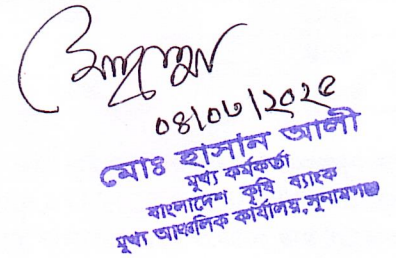 ০৪/০৬/২০২৫
মোঃ হাসান আলী
মুখ্য কর্মকর্তা
বাংলাদেশ কৃষি ব্যাংক
মুখ্য আঞ্চলিক কার্যালয়, সুনামগঞ্জ